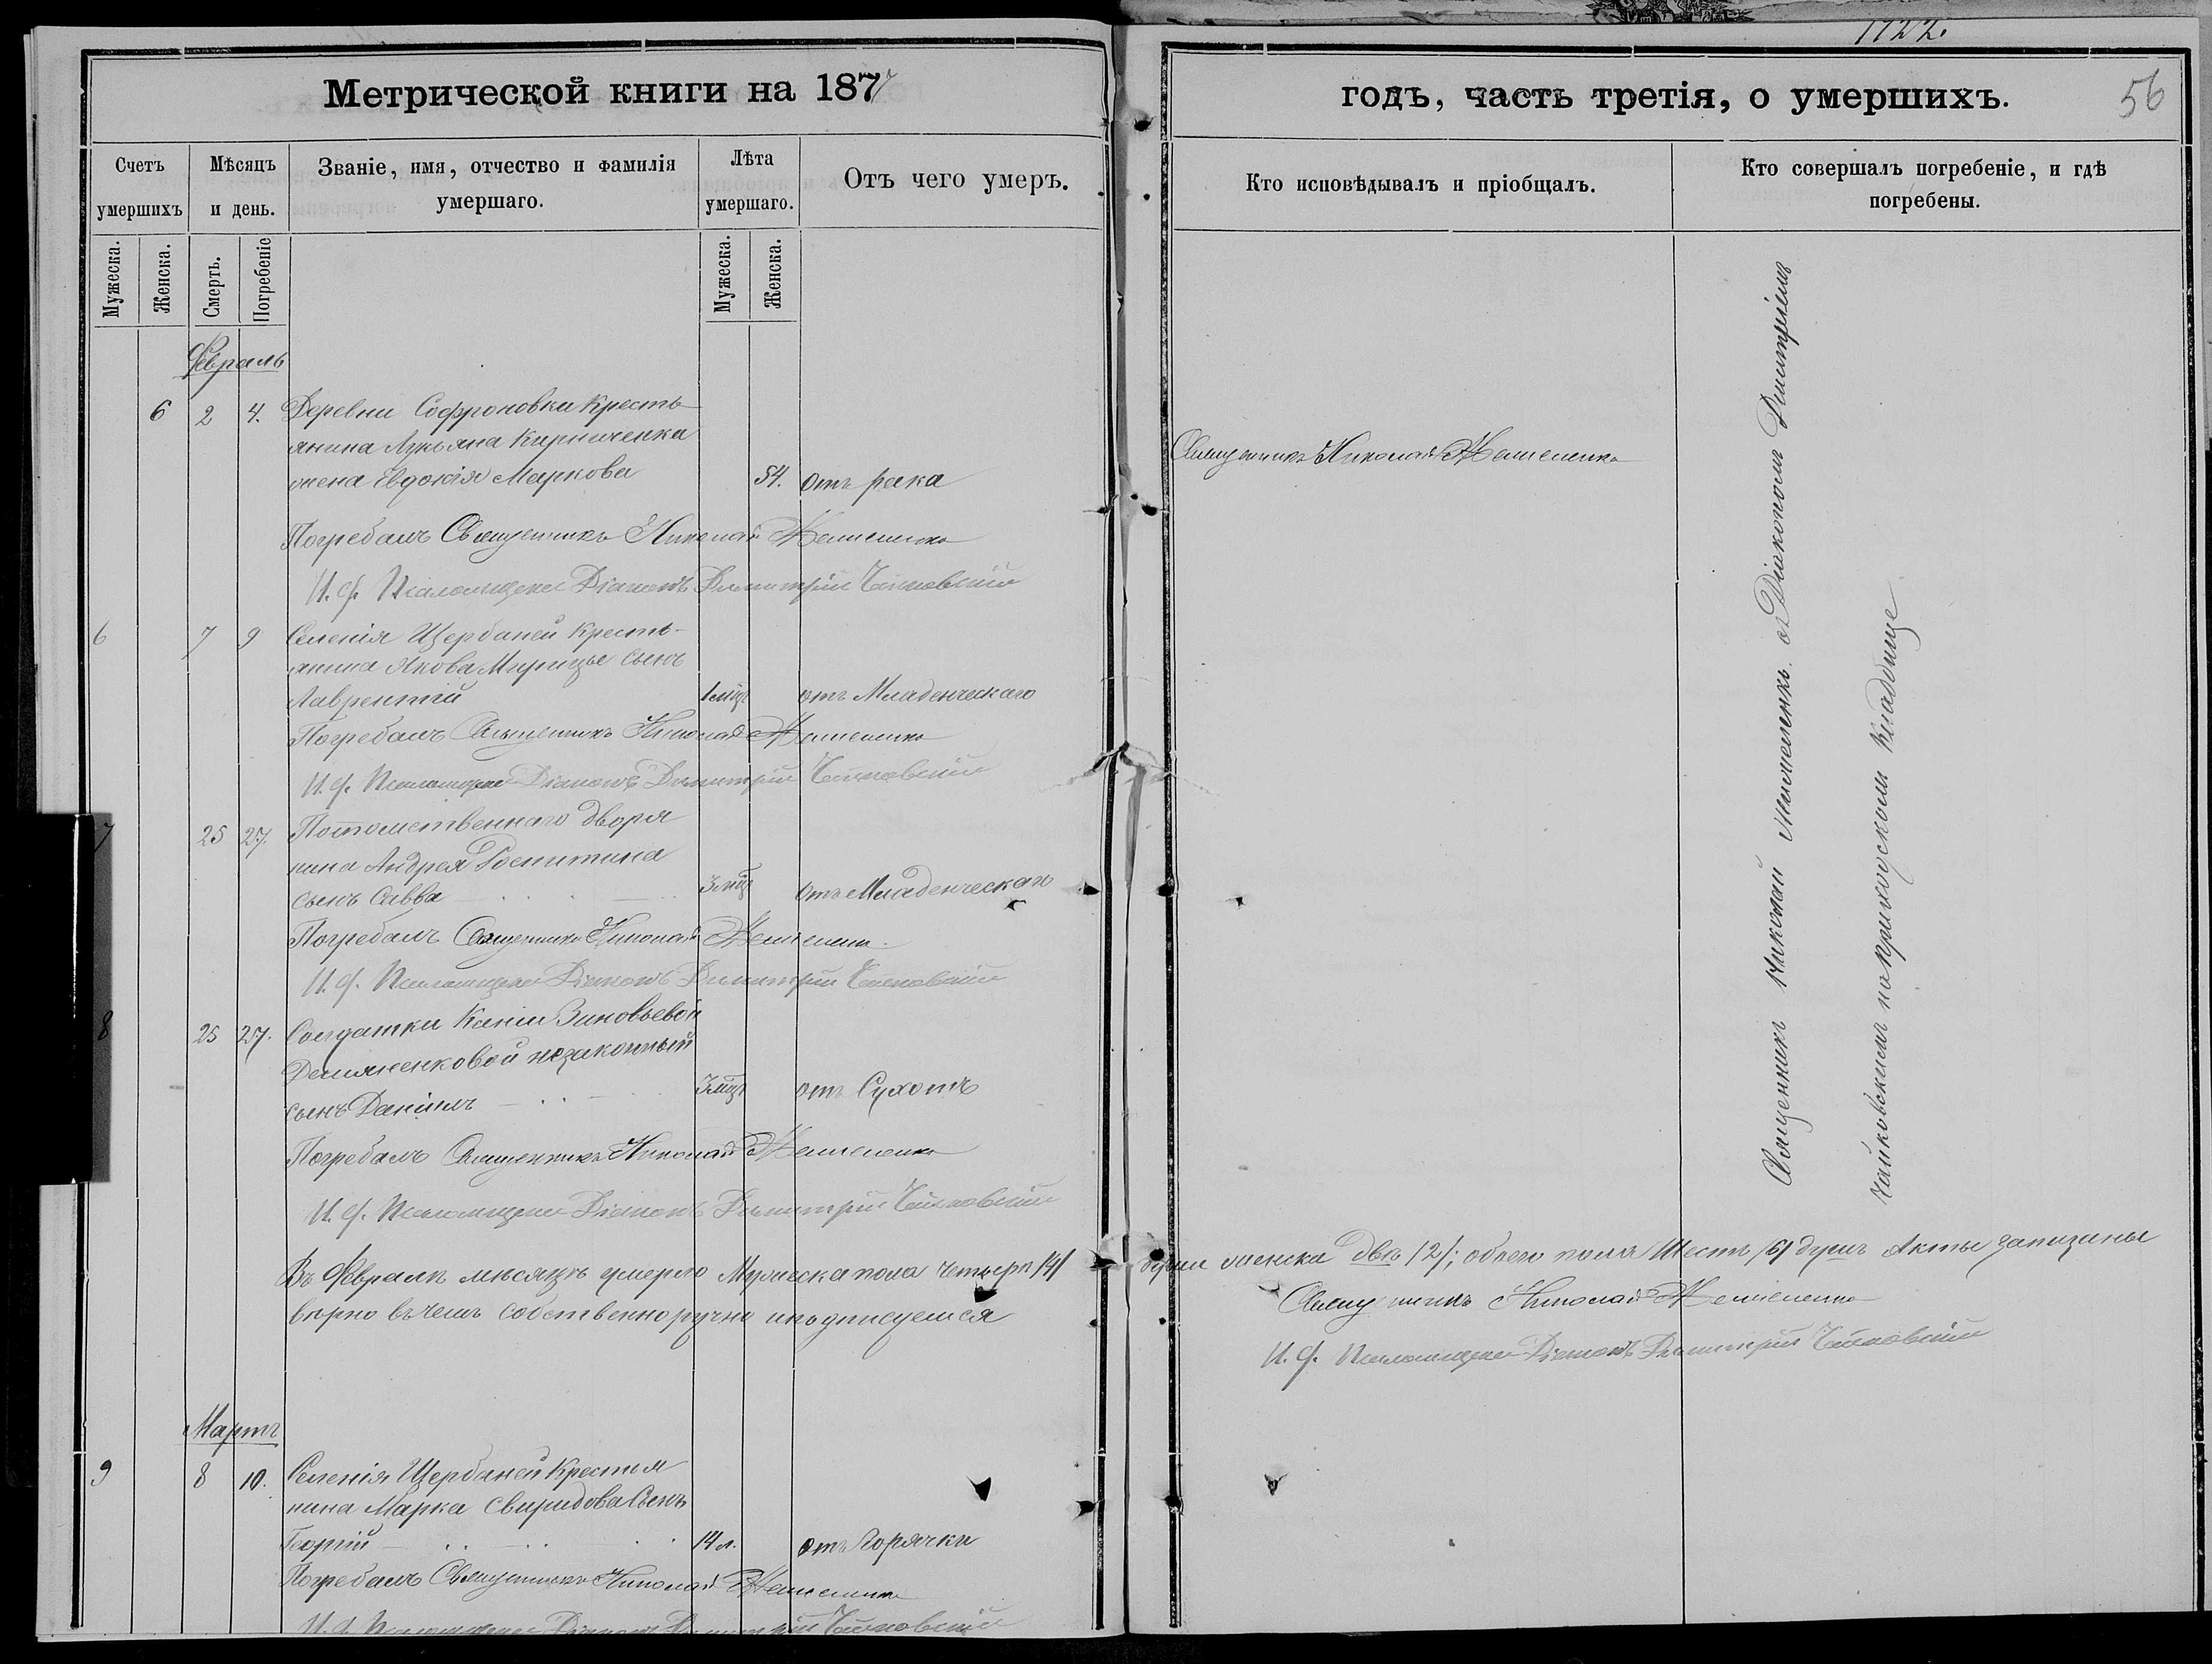 1722.
56
Метрической книги на 1877
годъ, часть третія, о умершихъ.
Счетъ умершихъ
Мѣсяцъ и день.
Званіе, имя, отчество и фамилія умершаго.
Лѣта умершаго.
Отъ чего умеръ.
Кто исповѣдывалъ и пріобщалъ.
Кто совершалъ погребеніе, и гдѣ погребены.
Мужеска.
Женска.
Смерть.
Погребеніе
Мужеска.
Женска.
Февраль
6 2 4. Деревни Софроновки Кресть
янина Лукьяна Кирниченка
жена Евдокія Маркова 54. отъ рака
Священникъ Николай
Погребалъ Священникъ Николай
И. ф. Псаломщика Діаконъ Димитрій Чайковскій
6 7 9 Селенія Щербаней Кресть-
янина Якова сынъ
Лаврентій 1 мцъ отъ Младенческаго
Погребалъ Священникъ Николай
И. ф. Псаломщика Діаконъ Димитрій Чайковскій
7 25 27. Потомственнаго дворя
нина Андрея
сынъ Савва 3 мцъ отъ Младенческаго
Погребалъ Священникъ Николай
И. ф. Псаломщика Діаконъ Димитрій Чайковскій
8 25 27. Солдатки Ксеніи Зиновьевой
Демяненковой незаконный
сынъ Даніилъ 3 мцъ отъ Сухотъ
Погребалъ Священникъ Николай
И. ф. Псаломщика Діаконъ Димитрій Чайковскій
Въ Февралѣ мѣсяцѣ умерло Мужеска пола четыре /4/ души женска двѣ /2/; обоего пола Шесть /6/ душъ Акты записаны
вѣрно въ чемъ собственноручно и подписуемся
Священникъ Николай
И. ф. Псаломщика Діаконъ Димитрій Чайковскій
Священникъ Николай съ Діакономъ Димитріемъ
Чайковскимъ на приходскомъ кладбище
Мартъ
9 8 10. Селенія Щербаней Крестья
нина Марка Свиридова Сынъ
Георгій 14 л. отъ Горячки
Погребалъ Священникъ Николай
И. ф. Псаломщика Діаконъ Димитрій Чайковскій